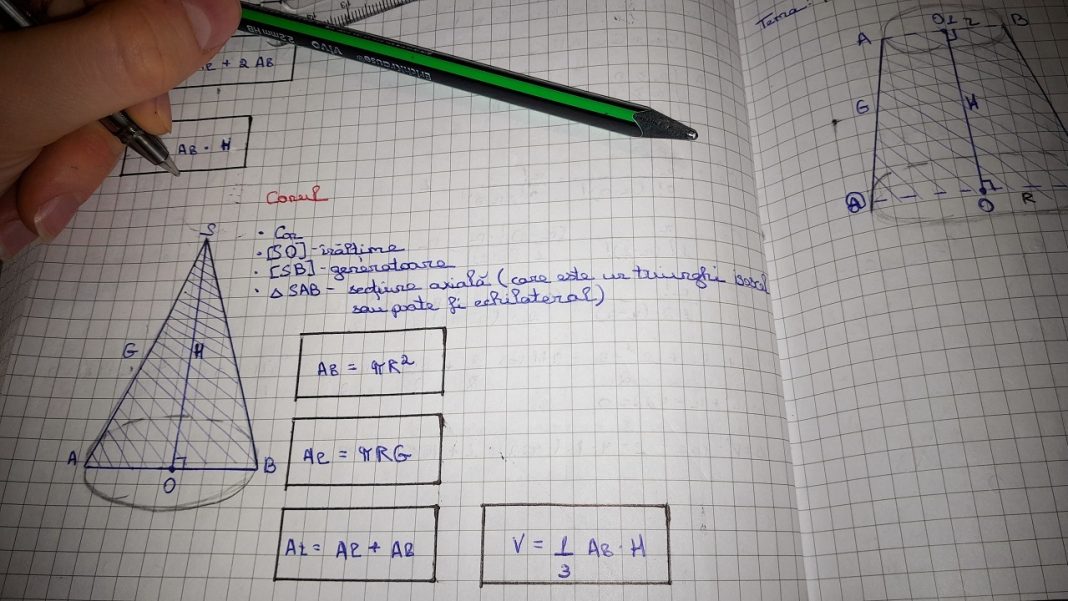 + 2 AB
AB · H
Tema:
Conul
· Con
· [SO] - înălțime
· [SB] - generatoare
· △ SAB - secțiune axială (care este un triunghi isoscel
sau poate fi echilateral)
S
G
H
A
B
O
AB = πR²
Al = πRG
At = Al + AB
V = 1/3 AB · H
A
O₁
r
B
G
H
A
O
R